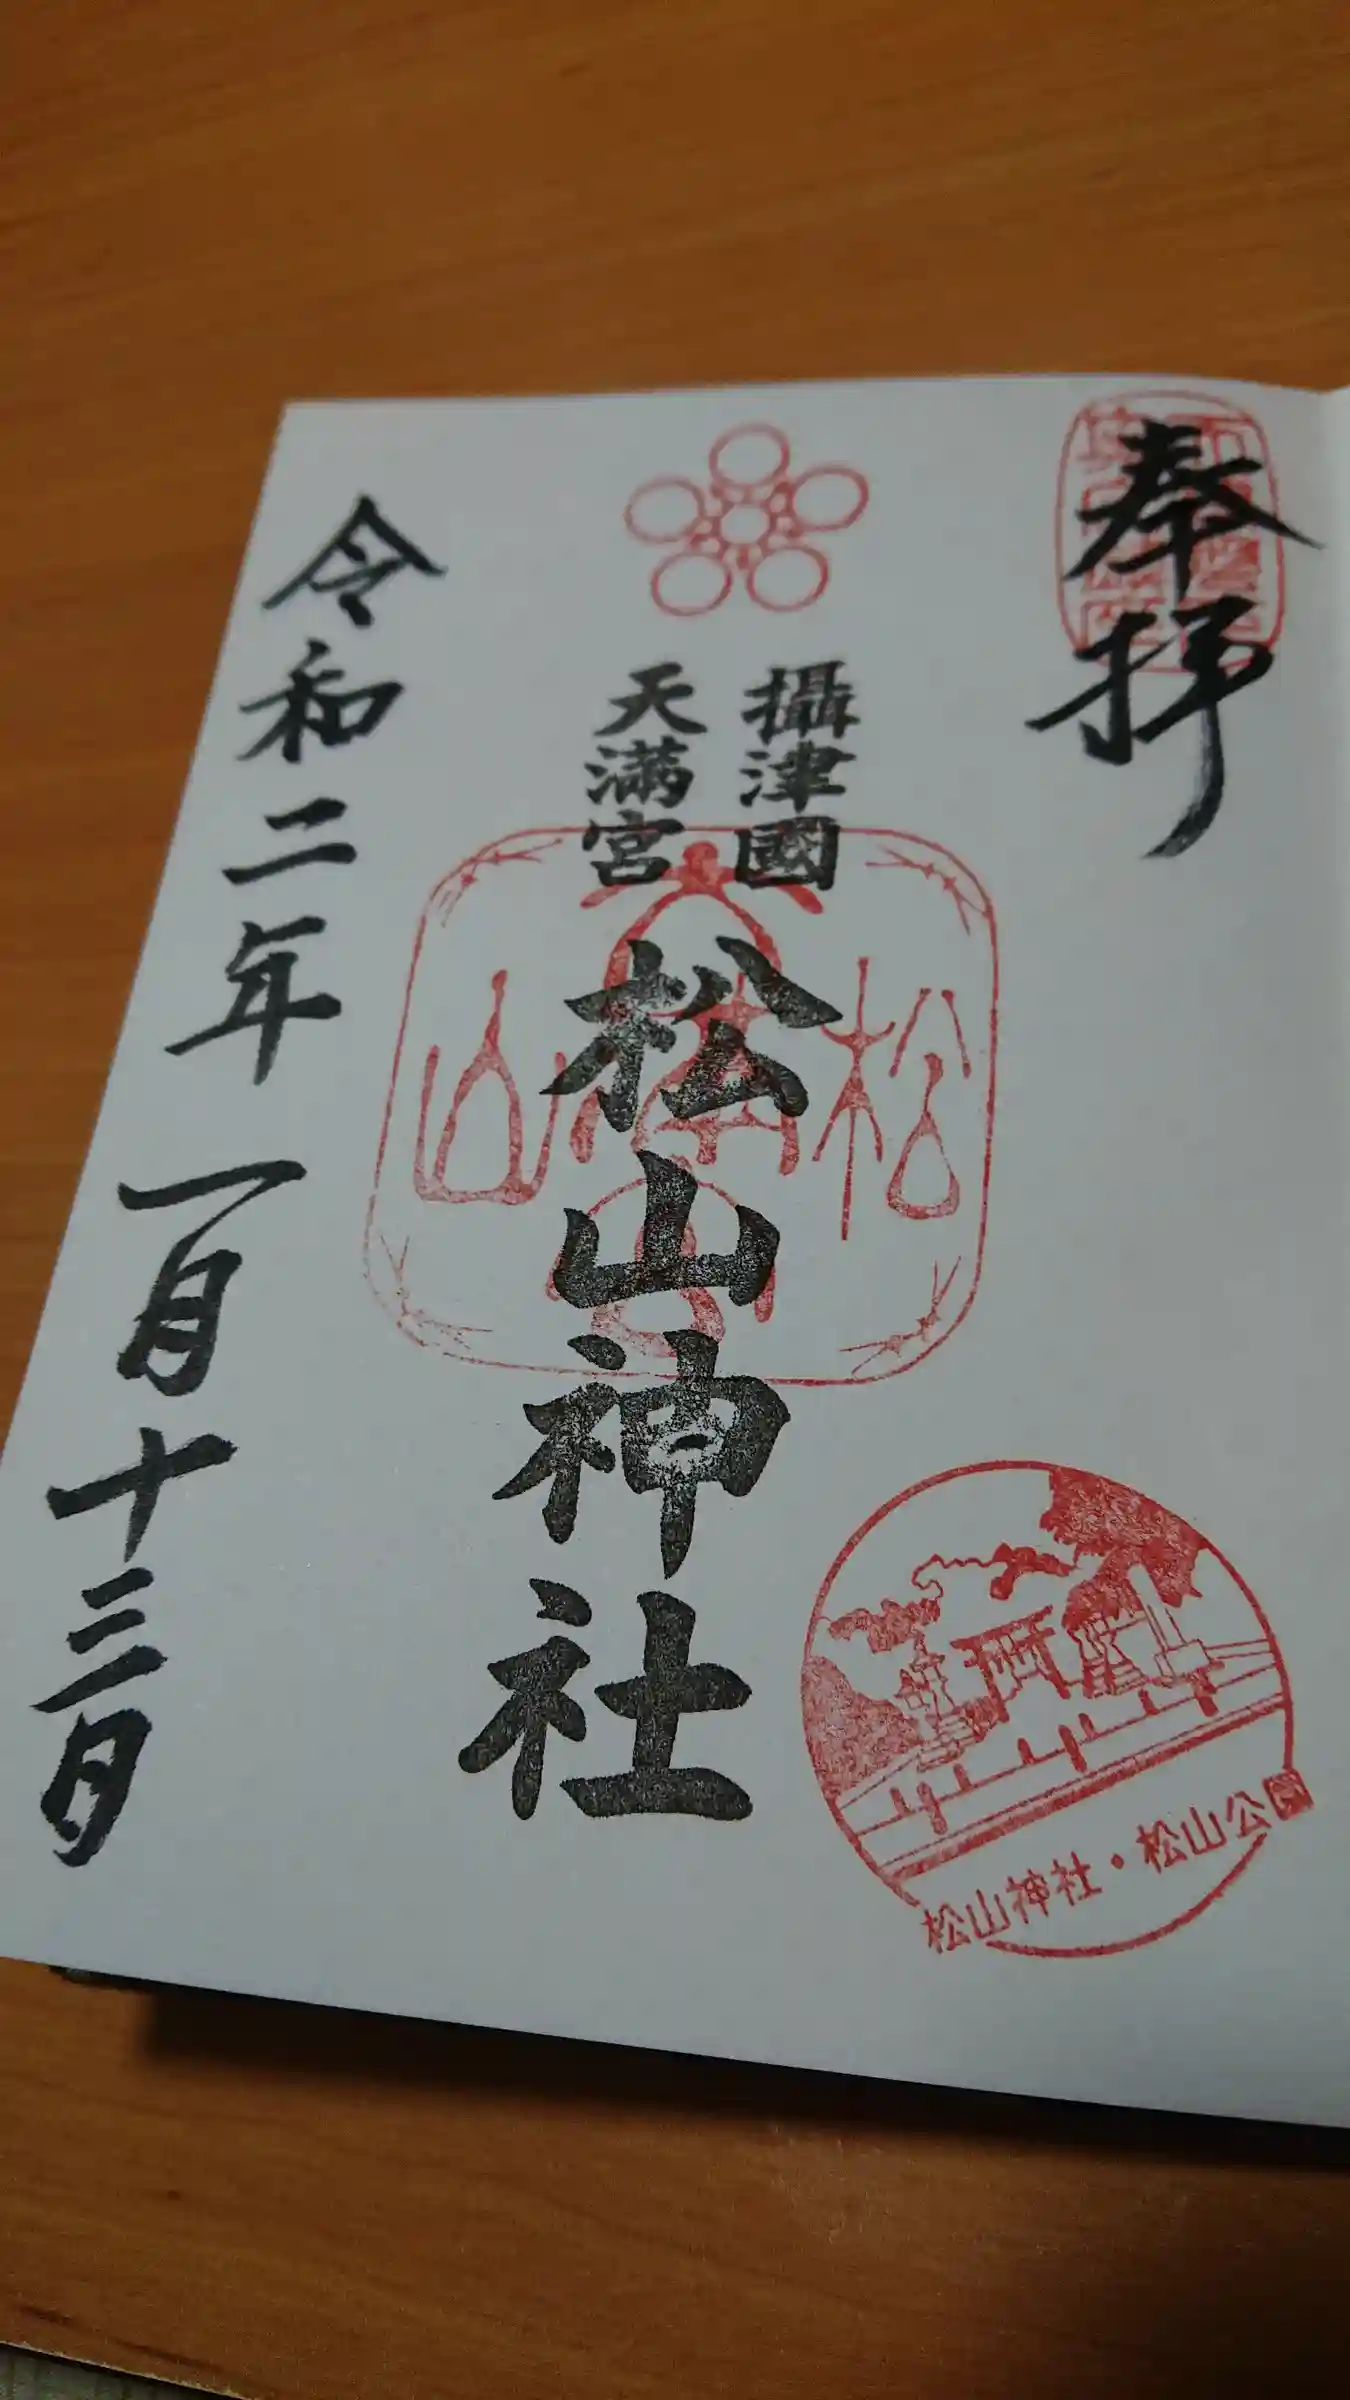 奉拝
攝津國
天満宮
松山神社
令和二年一月十三日
松山
松山神社・松山公園